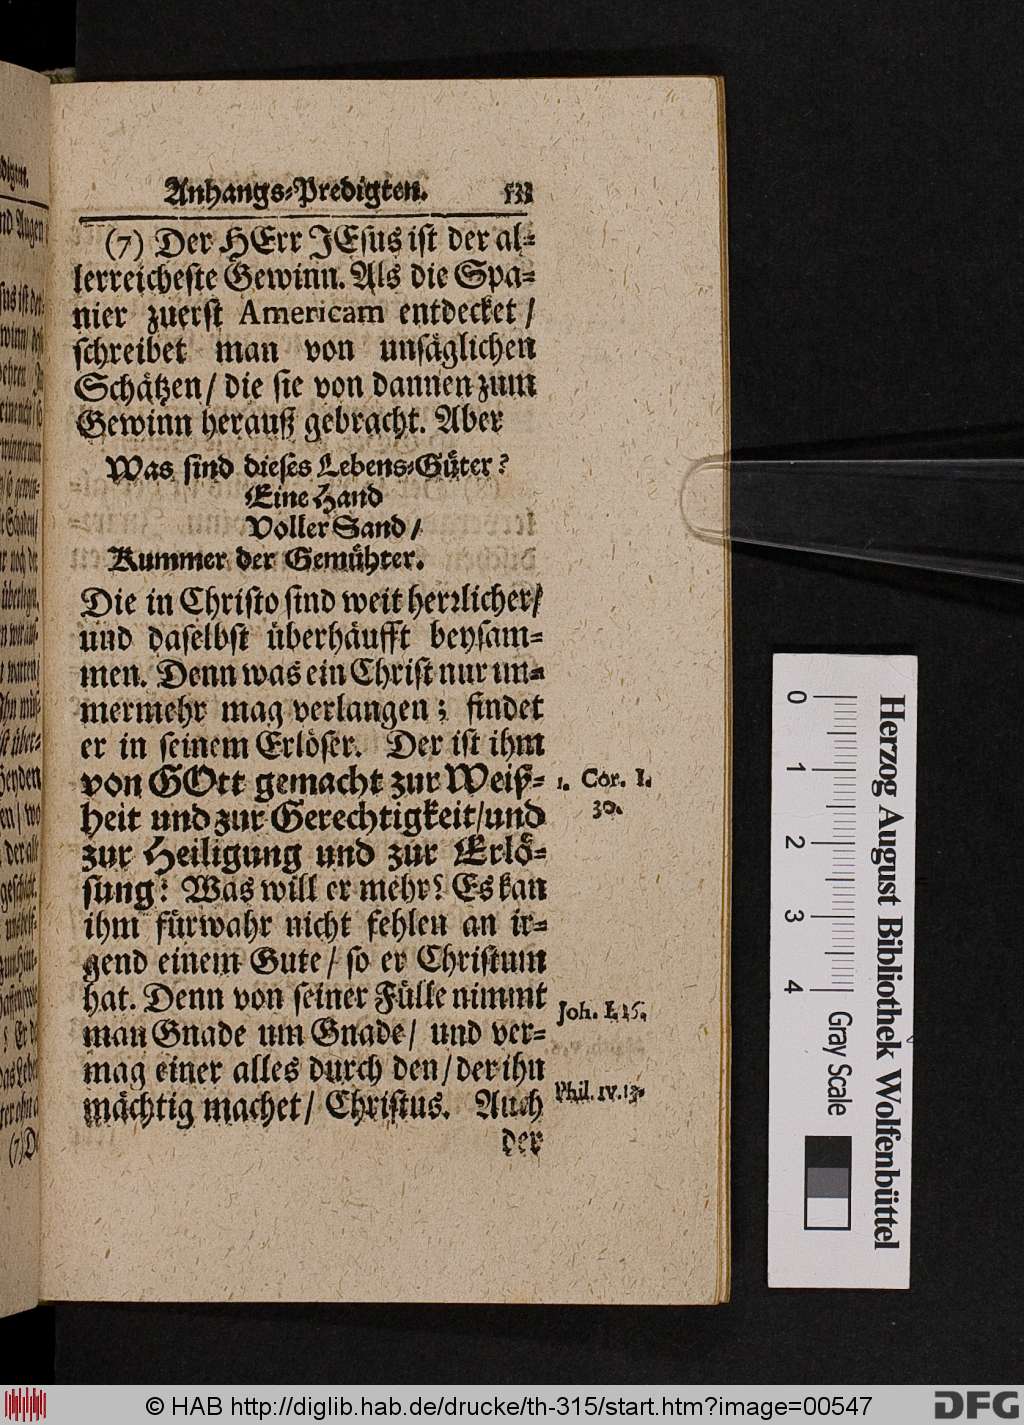 Anhangs-Predigten. 533
(7) Der HErr JEsus ist der al-
lerreicheste Gewinn. Als die Spa-
nier zuerst Americam entdecket /
schreibet man von unsäglichen
Schätzen / die sie von dannen zum
Gewinn herauß gebracht. Aber
Was sind dieses Lebens-Güter?
Eine Hand
Voller Sand /
Kummer der Gemühter.
Die in Christo sind weit herrlicher /
und daselbst überhäufft beysam-
men. Denn was ein Christ nur im-
mermehr mag verlangen; findet
er in seinem Erlöser. Der ist ihm
von GOtt gemacht zur Weiß-
heit und zur Gerechtigkeit / und
zur Heiligung und zur Erlö-
sung: Was will er mehr? Es kan
ihm fürwahr nicht fehlen an ir-
gend einem Gute / so er Christum
hat. Denn von seiner Fülle nimmt
man Gnade um Gnade / und ver-
mag einer alles durch den / der ihn
mächtig machet / Christus. Auch
der
1. Cor. I.
30.
Joh. I. 15.
Phil. IV. 13.
Herzog August Bibliothek Wolfenbüttel
0 1 2 3 4
Gray Scale
© HAB http://diglib.hab.de/drucke/th-315/start.htm?image=00547
DFG